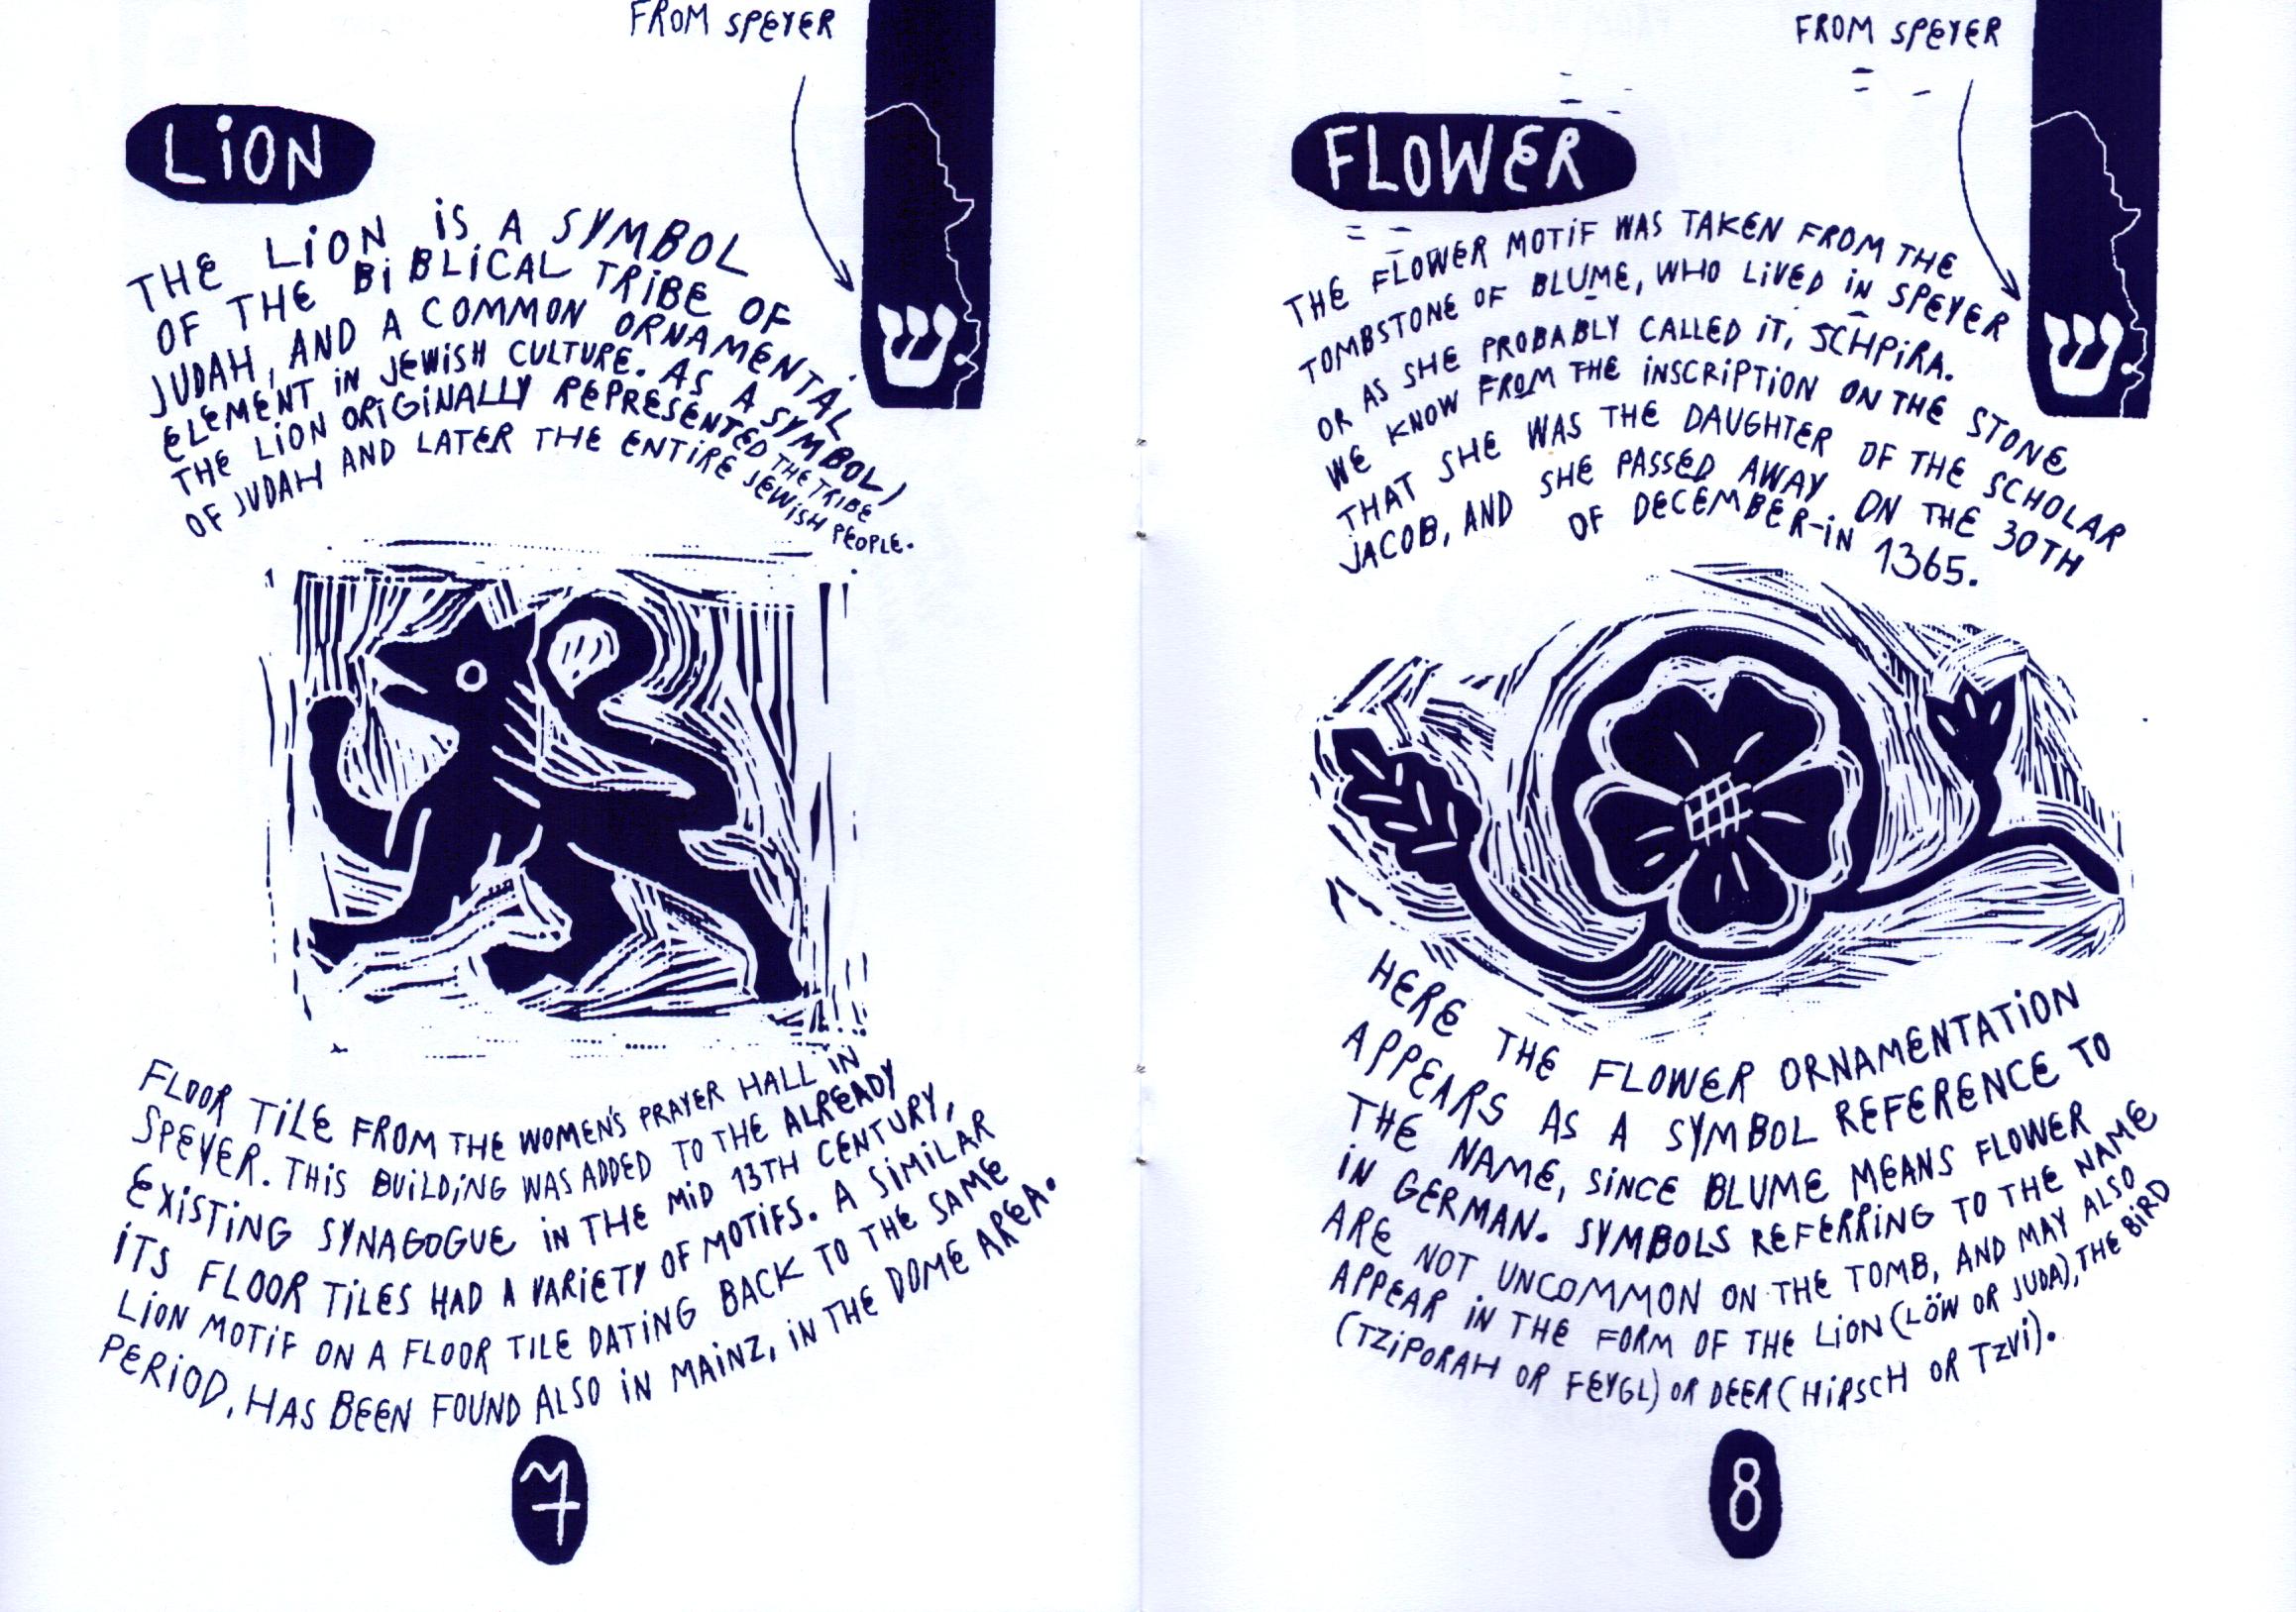 FROM SPEYER
LiON
THE LiON iS A SYMBOL
OF THE BiBLiCAL TRiBE OF
JUDAH, AND A COMMON ORNAMENTAL
ELEMENT iN JEWiSH CULTURE. AS A SYMBOL,
THE LiON ORiGiNALLY REPRESENTED THE TRiBE
OF JUDAH AND LATER THE ENTiRE JEWiSH PEOPLE.
ש
FLOOR TiLE FROM THE WOMEN'S PRAYER HALL iN
SPEYER. THiS BUiLDiNG WAS ADDED TO THE ALREADY
EXiSTiNG SYNAGOGUE iN THE MiD 13TH CENTURY,
iTS FLOOR TiLES HAD A VARiETY OF MOTiFS. A SiMiLAR
LiON MOTiF ON A FLOOR TiLE DATiNG BACK TO THE SAME
PERiOD, HAS BEEN FOUND ALSO iN MAiNZ, iN THE DOME AREA.
7
FROM SPEYER
FLOWER
THE FLOWER MOTiF WAS TAKEN FROM THE
TOMBSTONE OF BLUME, WHO LiVED iN SPEYER
OR AS SHE PROBABLY CALLED iT, SCHPiRA.
WE KNOW FROM THE iNSCRiPTiON ON THE STONE
THAT SHE WAS THE DAUGHTER OF THE SCHOLAR
JACOB, AND SHE PASSED AWAY ON THE 30TH
OF DECEMBER-iN 1365.
ש
HERE THE FLOWER ORNAMENTATiON
APPEARS AS A SYMBOL REFERENCE TO
THE NAME, SiNCE BLUME MEANS FLOWER
iN GERMAN. SYMBOLS REFERRiNG TO THE NAME
ARE NOT UNCOMMON ON THE TOMB, AND MAY ALSO
APPEAR iN THE FORM OF THE LiON (LÖW OR JUDA), THE BiRD
(TZiPORAH OR FEYGL) OR DEER (HiRSCH OR TZVi).
8